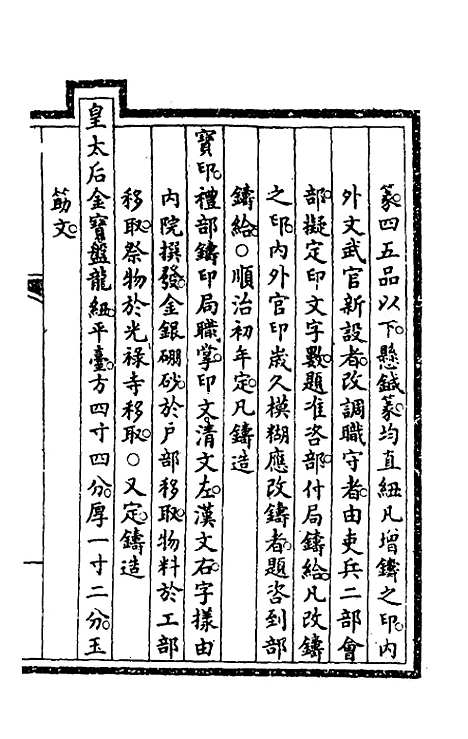 篆四五品以下懸鍼篆均直紐凡增鑄之印内
外文武官新設者改調職守者由吏兵二部會
部擬定印文字數題准咨部付局鑄給凡改鑄
之印内外官印嵗久模糊應改鑄者題咨到部
鑄給○順治初年定凡鑄造
寳印禮部鑄印局職掌印文清文左漢文右字樣由
内院撰發金銀硼砂於戸部移取物料於工部
移取祭物於光禄寺移取○又定鑄造
皇太后金寳盤龍紐平臺方四寸四分厚一寸二分玉
筯文